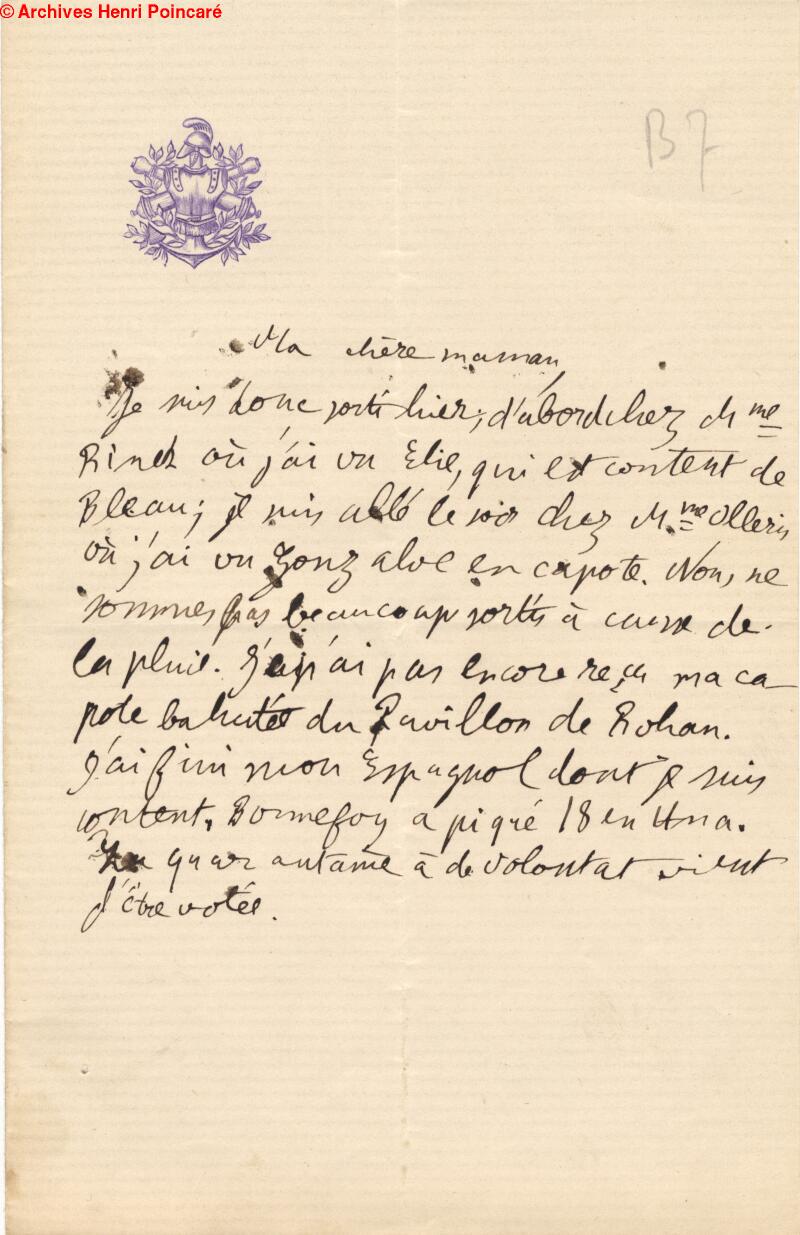 © Archives Henri Poincaré
B7
Ma chère maman,
Je suis donc sorti hier, d'abord chez Mme
Rinck où j'ai vu Elie, qui est content de
Bleau; je suis allé le soir chez Mme Olleris
où j'ai vu Gonzalve en capote. Nous ne
sommes pas beaucoup sortis à cause de
la pluie. Je n'ai pas encore reçu ma ca
pote bahutée du Pavillon de Rohan.
J'ai fini mon Espagnol dont je suis
content. Bonnefoy a piqué 18 en Ana.
quarantaine à de Volontat vient
d'être votée.